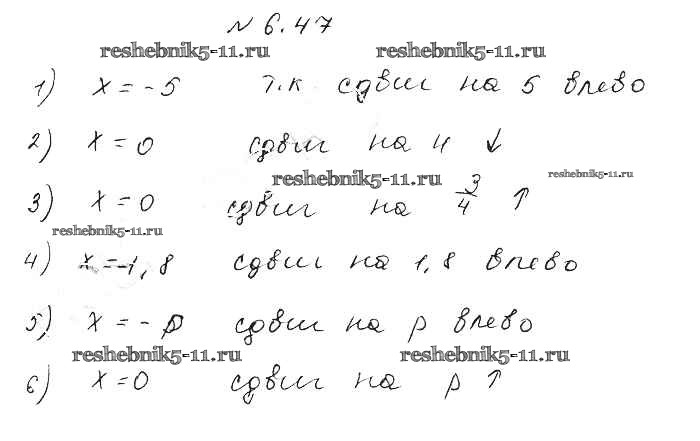 № 6.47
reshebnik5-11.ru reshebnik5-11.ru
1) x = -5 т.к сдвиг на 5 влево
2) x = 0 сдвиг на 4 ↓
reshebnik5-11.ru reshebnik5-11.ru
3) x = 0 сдвиг на 3/4 ↑
reshebnik5-11.ru
4) x = -1,8 сдвиг на 1,8 влево
5) x = -p сдвиг на p влево
reshebnik5-11.ru reshebnik5-11.ru
6) x = 0 сдвиг на p ↑